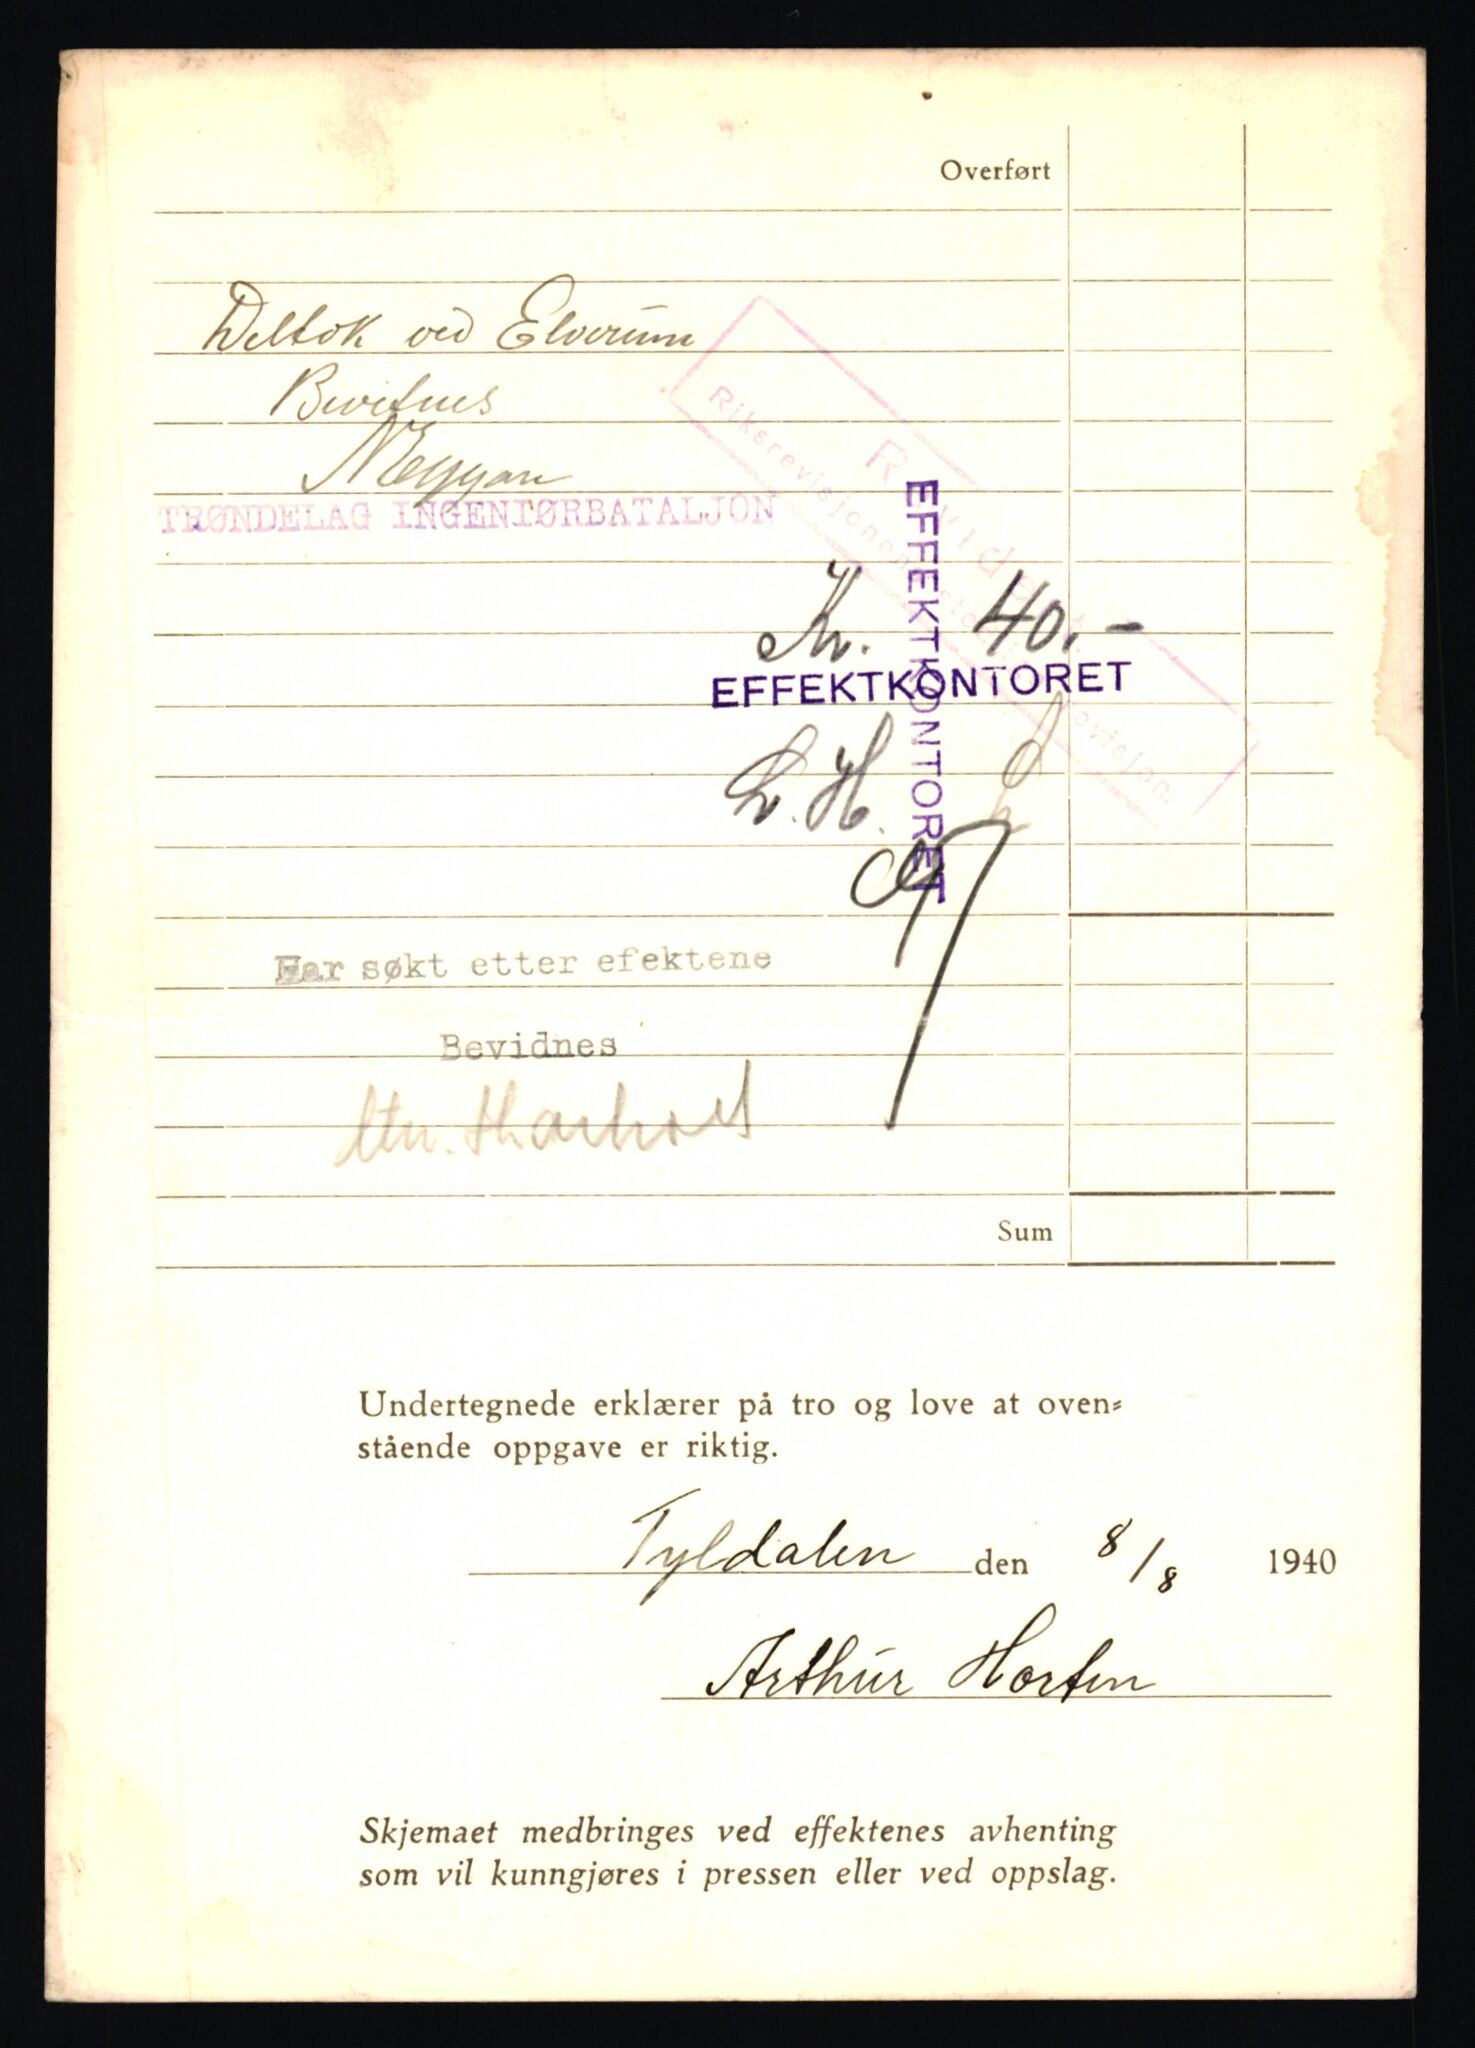 Overført
Deltok ved Elverum
Bevitnes
TRØNDELAG INGENIØRBATALJON
Revidert.
Riksrevisjonen
revisjon.
Kr. 40.-
EFFEKTKONTORET
EFFEKTKONTORET
L. H.
Har søkt etter efektene
Bevidnes
Sum
Undertegnede erklærer på tro og love at oven-
stående oppgave er riktig.
Tyldalen den 8/8 1940
Arthur Horten
Skjemaet medbringes ved effektenes avhenting
som vil kunngjøres i pressen eller ved oppslag.